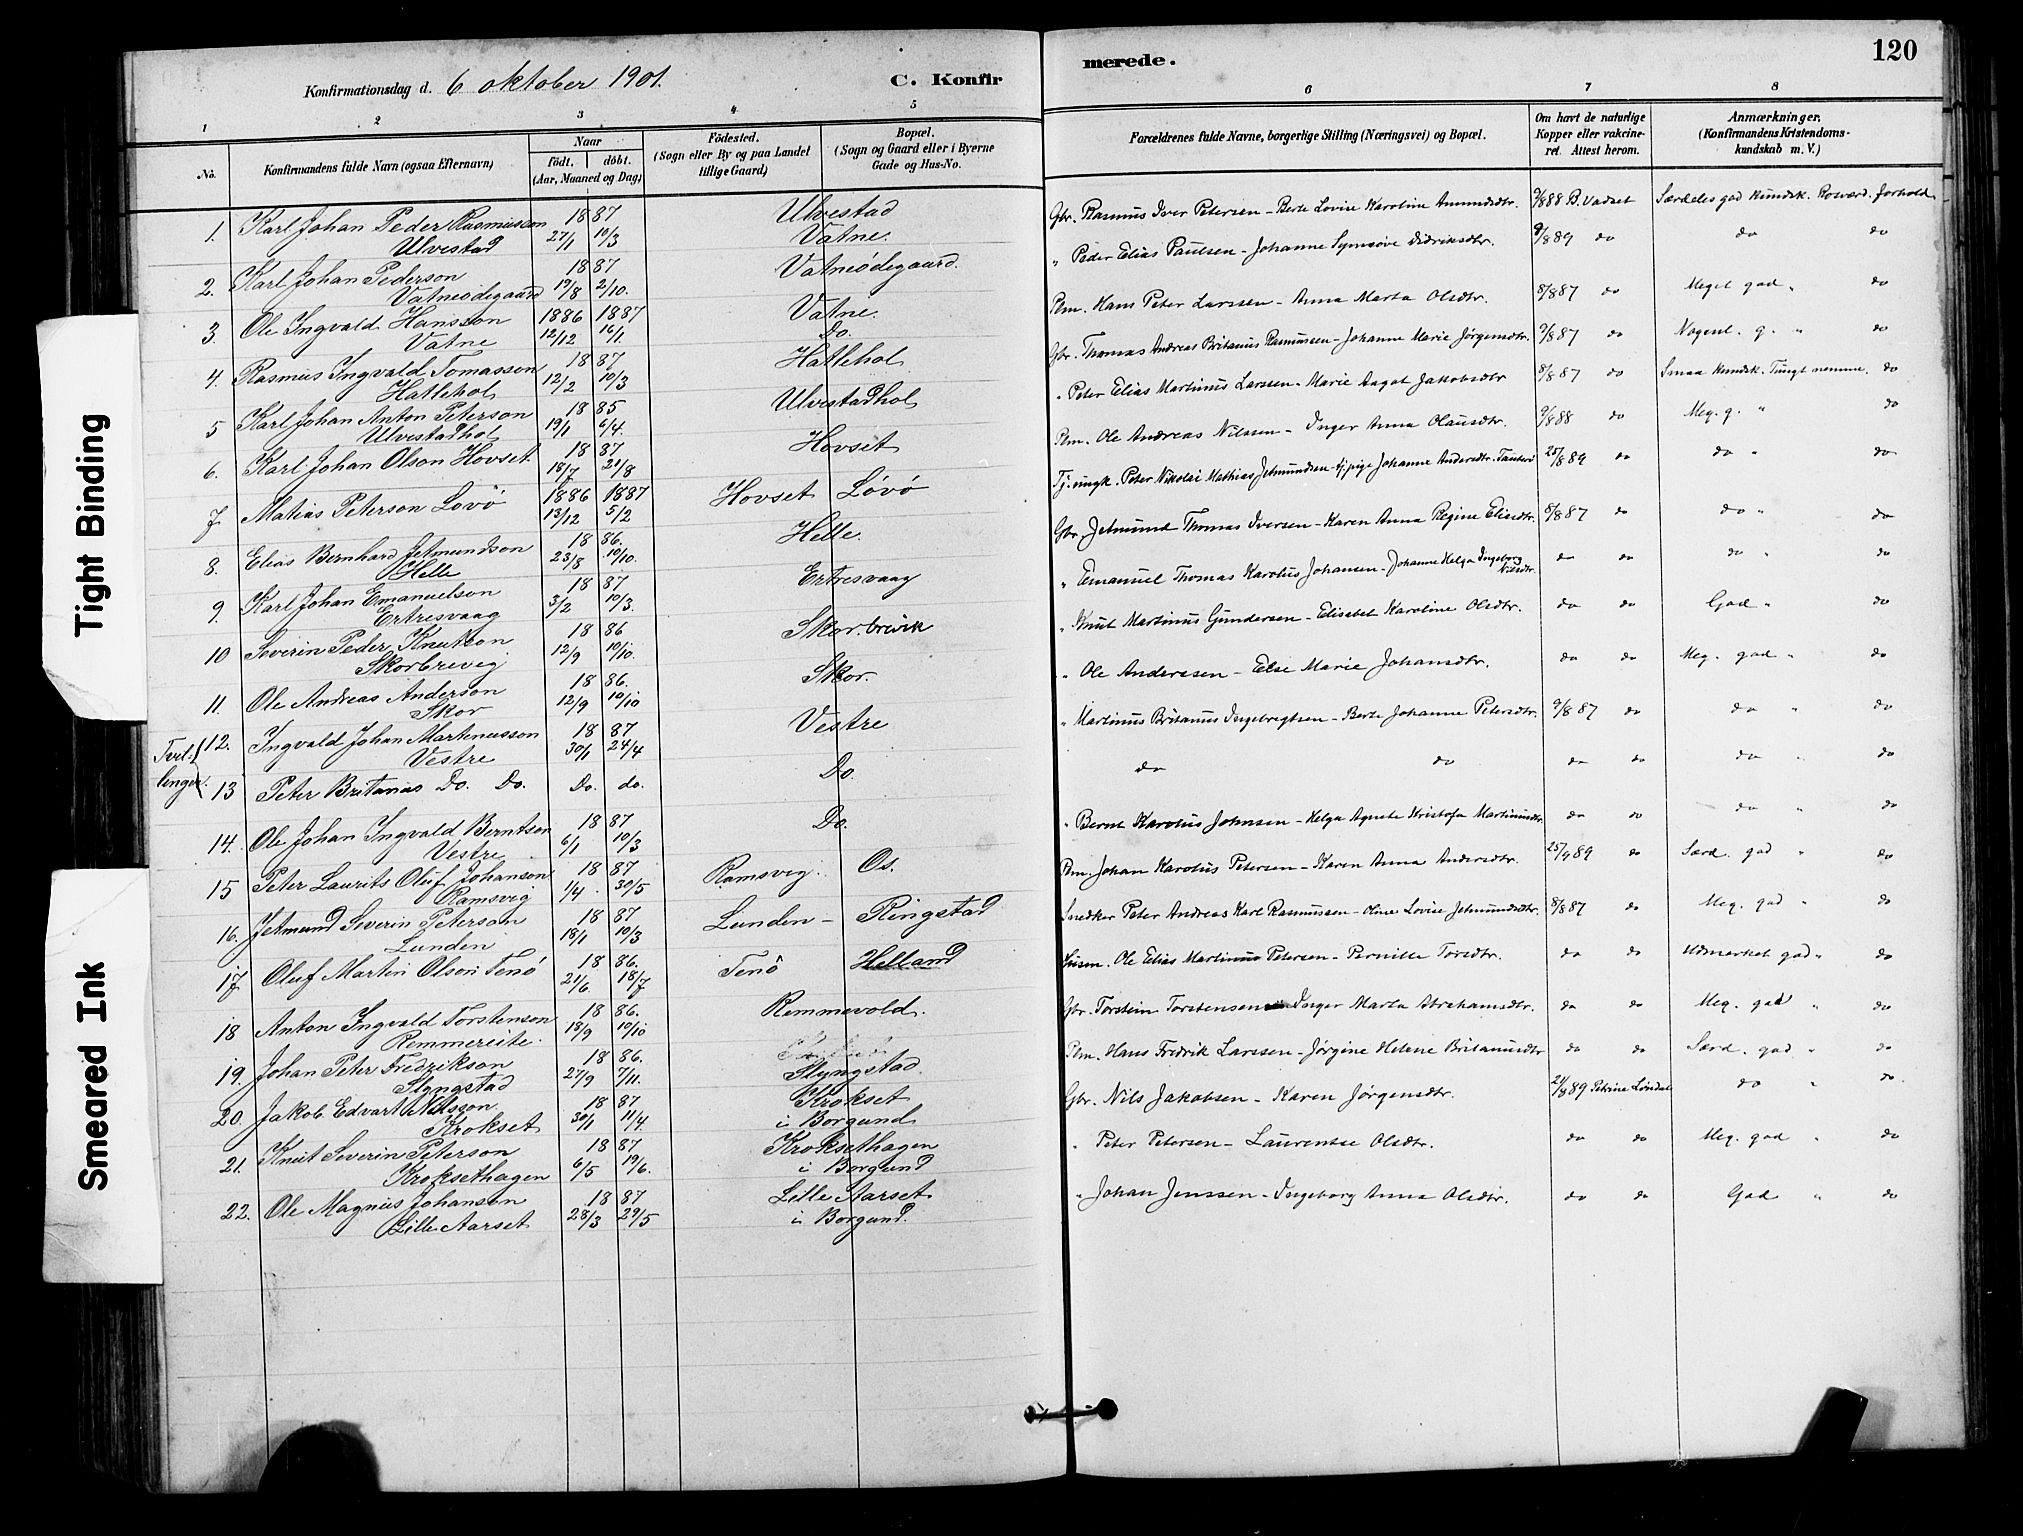 Tight Binding
Smeared Ink
120
Konfirmationsdag d. 6 oktober 1901.
C. Konfir
merede.
1 2 3 4 5
6 7 8
No.
Konfirmandens fulde Navn (ogsaa Efternavn)
Naar
født. døbt.
(Aar, Maaned og Dag)
Fødested.
(Sogn eller By og paa Landet
tillige Gaard)
Bopæl.
(Sogn og Gaard eller i Byerne
Gade og Hus-No.
Forældrenes fulde Navne, borgerlige Stilling (Næringsvei) og Bopæl.
Om havt de naturlige
Kopper eller vakcine-
ret. Attest herom.
Anmærkninger.
(Konfirmandens Kristendoms-
kundskab m. V.)
1. Karl Johan Peder Rasmusson 1887 Ulvestad
Ulvestad 27/1 10/3 Vatne.
2. Karl Johan Pederson 1887 Vatneødegaard.
Vatneødegaard 19/8 2/10.
3. Ole Ingvald Hansson 1886 1887 Vatne.
Vatne 12/12 16/1. Do.
4. Rasmus Ingvald Tomasson 1887 Hattehol
Hattehol 12/2 10/3
5 Karl Johan Anton Peterson 1885 Ulvestadhol
Ulvestadhol 19/1 6/4.
6. Karl Johan Olson Hovset 1887 Hovset
18/7 21/8
7 Matias Peterson Lovö 1886 1887 Hovset Løvø
13/12 5/2
8. Elias Bernhard Jetmundson 1886. Helle.
Helle 23/8 10/10.
9. Karl Johan Emanuelson 1887 Ertresvaag
Ertresvaag 3/2 10/3.
10 Severin Peder Knutson 1886 Skorbrevik
Skorbrevig 12/9 10/10.
11. Ole Andreas Anderson 1886. Skor.
Skor 12/9 10/10
Tvil- 12. Ingvald Johan Martinusson 1887 Vestre
Vestre 30/1 24/4
linger. 13 Peter Britanus Do. Do. Do. do. Do.
14. Ole Johan Ingvald Berntson 1887 Do.
Vestre 6/1 10/3
15 Peter Laurits Oluf Johanson 1887 Ramsvig. Os.
Ramsvig 1/4. 30/5
16. Jetmund Severin Peterson 1887 Lunden - Ringstad
Lunden 18/1 10/3
17 Oluf Martin Olson Tenö 1886. Tenö Helland
21/6 18/7
18 Anton Ingvald Torstenson 1886. Remmevold.
Remmereite. 18/9 10/10
19. Johan Peter Fredrikson 1886. Slyngstad
Slyngstad 27/9 7/11.
20. Jakob Edvart Nilsson 1887 Krokset
Krokset 30/1 11/4. i Borgund
21. Knut Severin Peterson 1887 Kroksethagen
Kroksethagen 6/5 19/6. i Borgund
22. Ole Magnus Johanson 1887 Lille Aarset
Lille Aarset 28/3 29/5 i Borgund.
Gbr. Rasmus Iver Petersen - Berte Lovise Karoline Amundsdtr. 9/888 B. Vadset Særdeles god Kundsk. Rosværd. forhold
" Peder Elias Paulsen - Johanne Synnøve Didriksdtr. 9/889 do do do
Plm. Hans Peter Larssen - Anna Marta Olsdtr. 8/887 do Meget god " do
Gbr. Thomas Andreas Britanus Rasmussen - Johanne Marie Jørgensdtr. 9/887 do Nogenl. g. " do
" Peter Elias Martinus Larssen - Marie Aagot Jakobsdtr 8/887 do Smaa Kundsk. Tungt nemme. do
Plm. Ole Andreas Nilssen - Inger Anna Olausdtr. 9/888 do Meg. g. " do
Tj. ungk. Peter Nikolai Mathias Jetmundsen - tj. pige Johanne Andersdtr. 25/889 do do " do
Gbr. Jetmund Thomas Iversen - Karen Anna Regine Elisdtr. 8/887 do do " do
" Emanuel Thomas Karolus Johansen - Johanne Helga Ingeborg Nilsdtr. do do do " do
" Knut Martinus Gundersen - Elisabet Karoline Olsdtr. do do God " do
" Ole Anderssen - Else Marie Johansdtr. do do Meg. god " do
" Martinus Britanus Ingebrigtsen - Berte Johanne Petersdtr. 9/887 do do " do
do do do do do " do
" Bernt Karolus Johnsen - Helga Agnete Kristofa Martinusdtr. do do do " do
Plm. Johan Karolus Petersen - Karen Anna Andersdtr. 25/989 do Særd. god " do
Snedker Peter Andreas Karl Rasmussen - Oline Lovise Jetmundsdtr. 8/887 do Meg. god " do
Husm. Ole Elias Martinus Petersen - Pernille Toresdtr. do do Udmerket god " do
Gbr. Torstein Torstensen - Inger Marta Abrahamsdtr. do do Meg. god " do
Plm. Hans Fredrik Larssen - Jørgine Helene Britanusdtr do do Særd. god " do
Gbr. Nils Jakobsen - Karen Jørgensdtr. 21/889 Petrine Løndal do " do.
" Peter Petersen - Laurentse Olsdtr. do do Meg. god " do
" Johan Jenssen - Ingeborg Anna Olsdtr. do do God " do